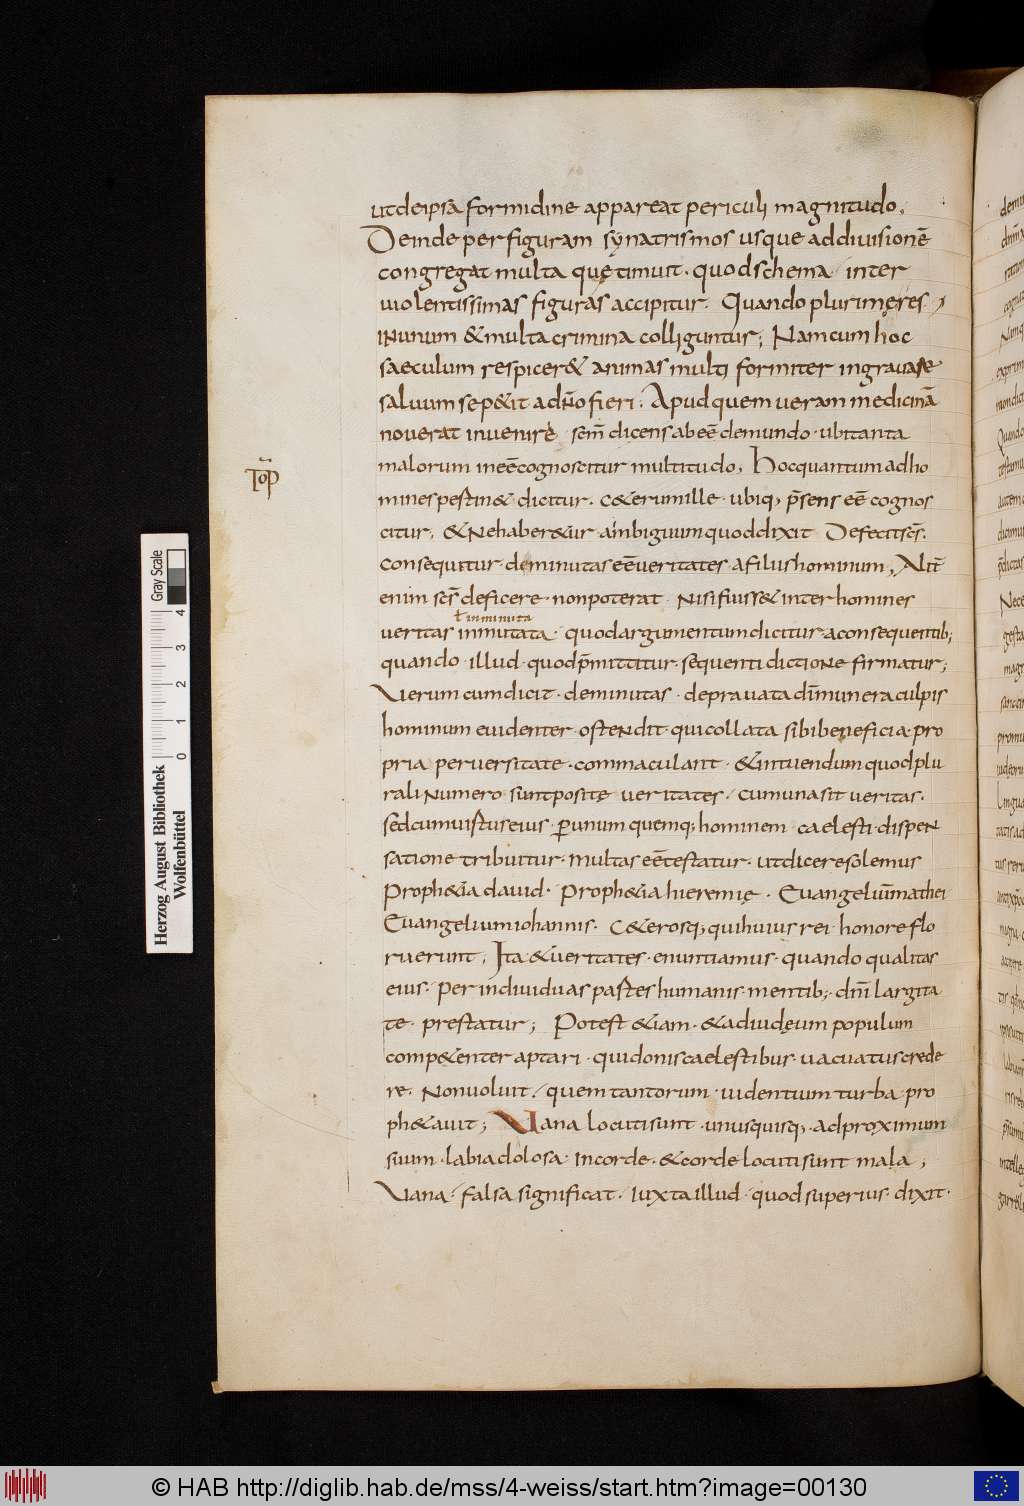 ut de ipsa formidine appareat periculi magnitudo.
Deinde per figuram synatrismos usque ad divisionē
congregat multa quę timuit. quod schema inter
violentissimas figuras accipitur. Quando plurimę res
in unum & multa crimina colliguntur; Nam cum hoc
saeculum respicer& animas multi formiter ingravare
salvum se p&it a dn̄o fieri. Apud quem veram medicinā
noverat invenire sem̄ dicens abeē de mundo. ubi tanta
malorum ineē cognoscitur multitudo, Hoc quantum ad ho
mines pestin& dicitur. c&erum ille ubiq; p̄sens eē cognos
citur. & ne haber&ur ambiguum quod dixit Defecit sc̄s.
Top̄
consequitur. deminutas eē veritates a filiis hominum, Alit̄
enim sc̄s deficere. non poterat. Nisi fuiss& inter homines
ł inminuta
veritas inmutata. quod argumentum dicitur a consequentib;
quando. illud. quod p̄mittitur. sequenti dictione firmatur;
Verum cum dicit. deminutas. depravata dn̄i munera culpis
hominum evidenter. ostendit. qui collata sibi beneficia. pro
pria perversitate. commaculant. & intuendum quod plu
rali numero sunt positę veritates. cum una sit veritas.
sed cum iustus eius. per unum quemq; hominem. caelesti. dispen
satione tribuitur. multas eē testatur. ut dicere solemus
Proph&ia david. Proph&ia hieremię. Evangeliū mathei
Evangelium iohannis. c&erosq; qui huius rei. honore flo
ruerunt, Ita & veritates. enuntiamus. quando qualitas
eius. per individuas partes humanis. mentib;. dn̄i largita
te. prestatur; Potest &iam. & ad iudęum populum
comp&enter aptari. qui donis caelestibus. vacuatus crede
re. Noluit. quem tantorum. videntium turba. pro
ph&avit; Vana locuti sunt. unusquisq; ad proximum
suum. labia dolosa. in corde. & corde locuti sunt mala;
Vana. falsa significat. iuxta illud. quod superius. dixit.
Herzog August Bibliothek
Wolfenbüttel
Gray Scale
0 1 2 3 4
© HAB http://diglib.hab.de/mss/4-weiss/start.htm?image=00130